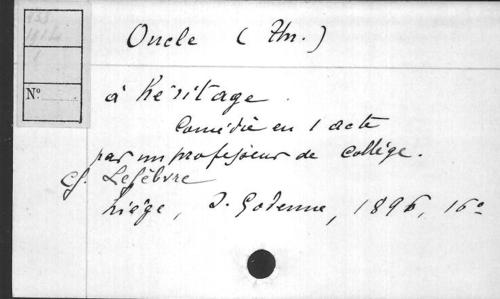 Oncle (Un.)
N°
à Héritage.
Comédie en 1 acte
par un professeur de collège.
cf. Lefèbvre
Liège, J. Godenne, 1896, 16°